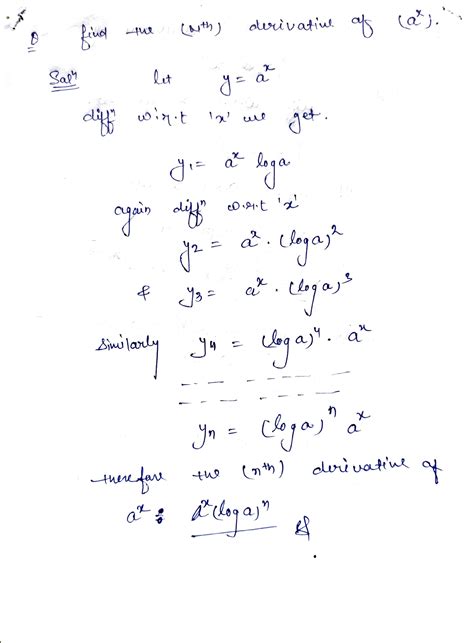 Q find the (nth) derivative of (aˣ).
Solⁿ let y = aˣ
diffⁿ w.r.t 'x' we get.
y₁ = aˣ loga
again diffⁿ w.r.t 'x'
y₂ = aˣ . (loga)²
& y₃ = aˣ . (loga)³
Similarly y₄ = (loga)⁴ . aˣ
yₙ = (loga)ⁿ aˣ
therefore the (nth) derivative of
aˣ : aˣ(loga)ⁿ